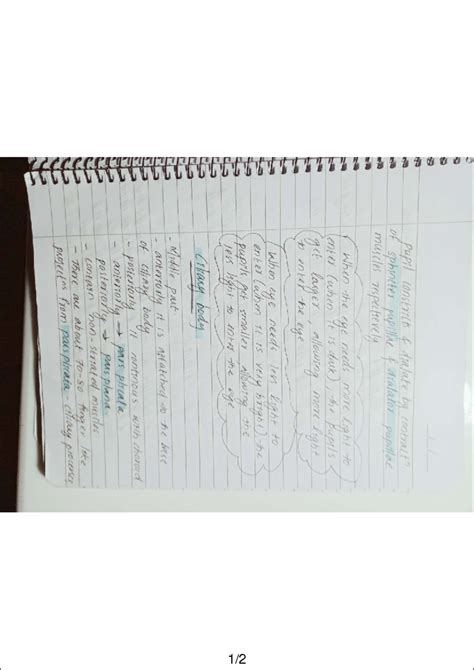 Pupil constrict & dialate by contract
of sphincter pupillae & dialator pupillae
muscles respectively
When the eye needs more light to
enter (when it is dark), the pupils
get larger, allowing more light
to enter the eye
When eye needs less light to
enter (when it is very bright), the
pupils get smaller allowing the
less light to enter the eye
Ciliary body
- Middle part
- anteriorly it is attatched to the base
of ciliary body
- posteriorly it continous with choroid
- anteriorly → pars plicata
posteriorly → pars plana
- contain non-striated muscles
- There are about 70-80 finger like
projections from pars plicata - ciliary processes
1/2